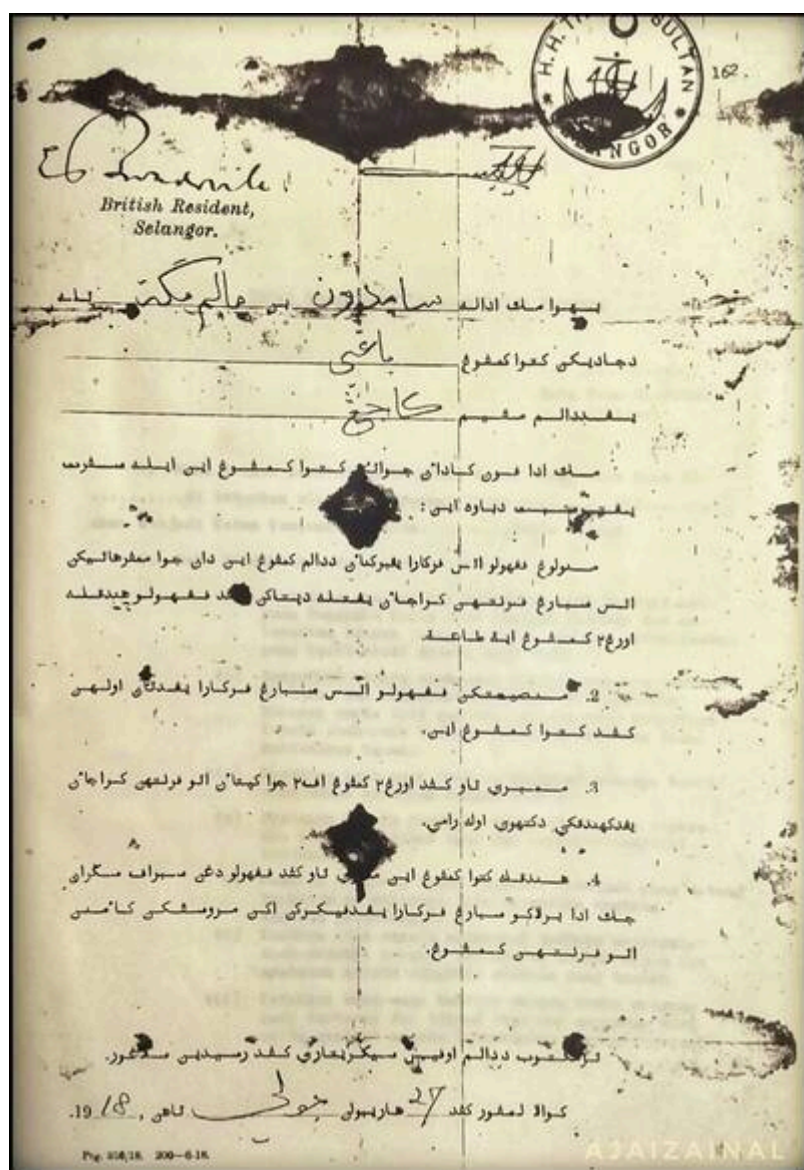 H.H. SULTAN
162.
British Resident,
Selangor.
بهوا مك اداله سامدون بن حالم
دجاديكن كتوا كمڤوڠ باڠي
يڠددالم مقيم كاجڠ
مك ادا ڤون كاداءن جواتن كتوا كمڤوڠ اين ايله سڤرت
دباوه اين:
منولوڠ ڤڠهولو اتس ڤركارا يڠبركناءن ددالم كمڤوڠ اين دان جوا ممڤرهاتيكن
اتس سبارڠ ڤرنتهن كراجاءن يڠتله دڽتاكن ڤڠهولو هندقله
اورڠ٢ كمڤوڠ ايت طاعة.
2. منصيحتكن ڤڠهولو اتس سبارڠ ڤركارا يڠدتاڽ اوليهن
كڤد كتوا كمڤوڠ اين.
3. ممبري تاو كڤد اورڠ٢ كمڤوڠ اڤ٢ جوا كڽتاءن اتو ڤرنتهن كراجاءن
يڠدكهندقكن دكتهوي اوله رامي.
4. هندقله كتوا كمڤوڠ اين ممبري تاو كڤد ڤڠهولو دڠن سبراڤ سڬراڽ
جك ادا برلاكو سبارڠ ڤركارا يڠدڤيكركن اكن مروسقكن كأمنن
اتو ڤرنتهن كمڤوڠ.
ترمكتوب ددالم اوفيس سيكريتاري كڤد رسيدين سلاڠور.
كوالا لمڤور كڤد 27 هاريبولن جولي تاهن 1918.
Ptg. 356/18. 200—6-18.
AJAIZAINAL